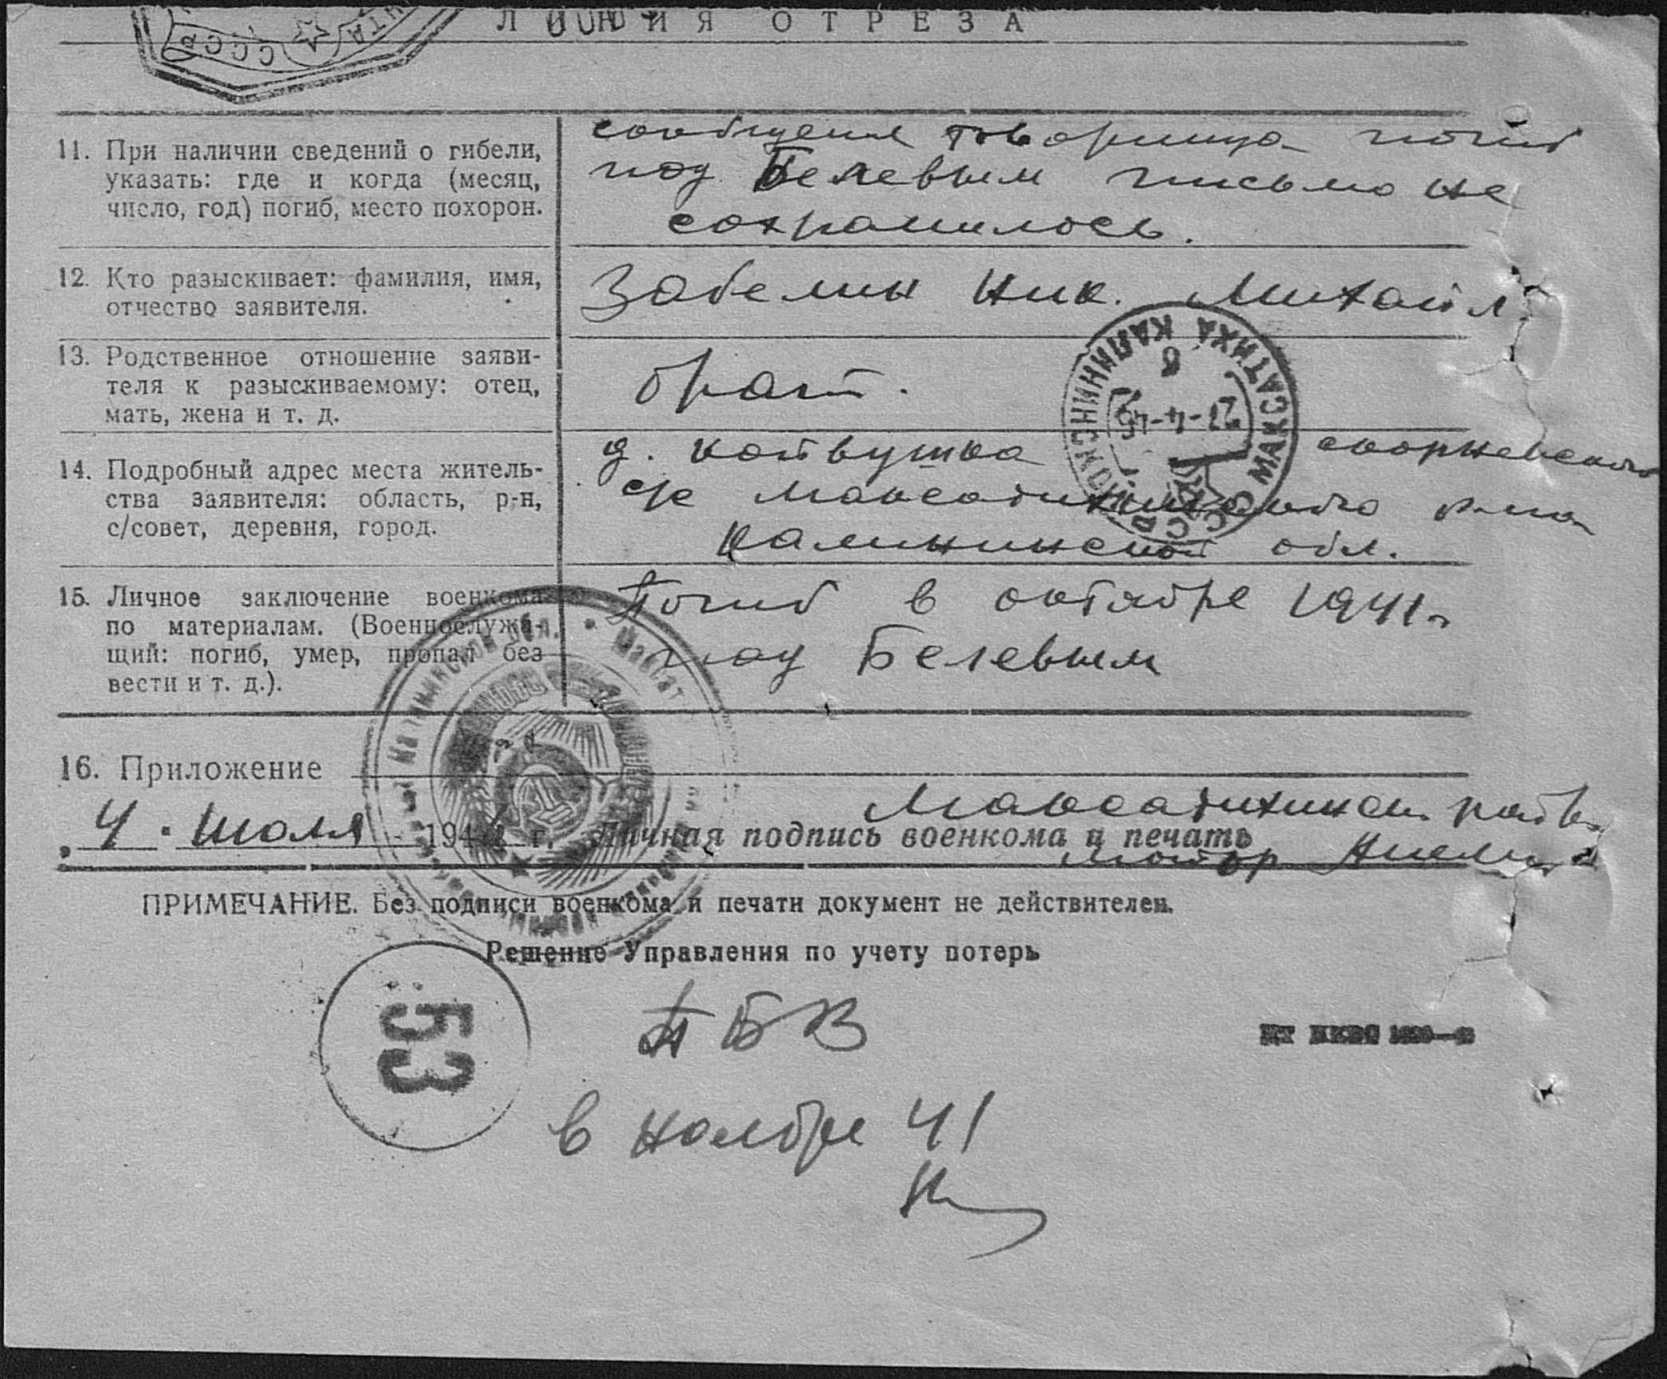 ЛИНИЯ ОТРЕЗА
СССР
11. При наличии сведений о гибели,
указать: где и когда (месяц,
число, год) погиб, место похорон.
сообщения товарища погиб
под Белевым письмо не
сохранилось.
12. Кто разыскивает: фамилия, имя,
отчество заявителя.
Забелин Ник. Михайл.
13. Родственное отношение заяви-
теля к разыскиваемому: отец,
мать, жена и т. д.
брат.
МАКСАТИХА КАЛИНИНСКОЙ
СССР
14. Подробный адрес места житель-
ства заявителя: область, р-н,
с/совет, деревня, город.
д.
с/с Максатихинского р-на
Калининской обл.
15. Личное заключение военкома
по материалам. (Военнослужа-
щий: погиб, умер, пропал без
вести и т. д.).
Погиб в октябре 1941 г.
под Белевым
16. Приложение
Максатихинск. райв.
„4. Июля - 194 г. Личная подпись военкома и печать
майор
ПРИМЕЧАНИЕ. Без подписи военкома и печати документ не действителен.
Решение Управления по учету потерь
53
ПБВ
в ноябре 41